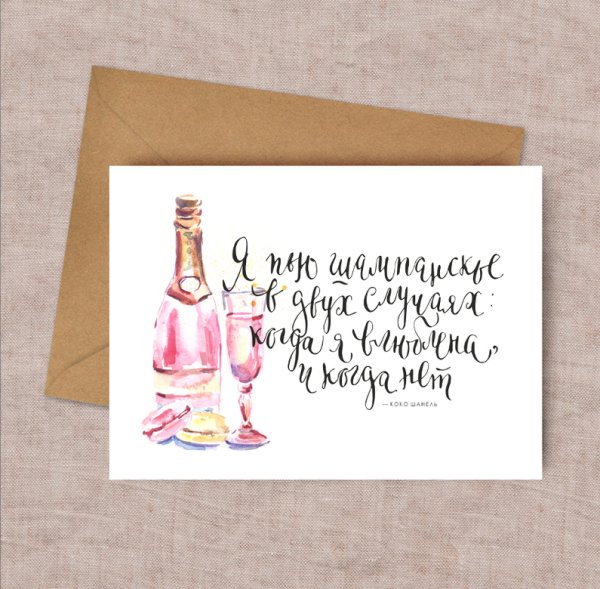 Я пью шампанское
в двух случаях:
когда я влюблена,
и когда нет
— КОКО ШАНЕЛЬ